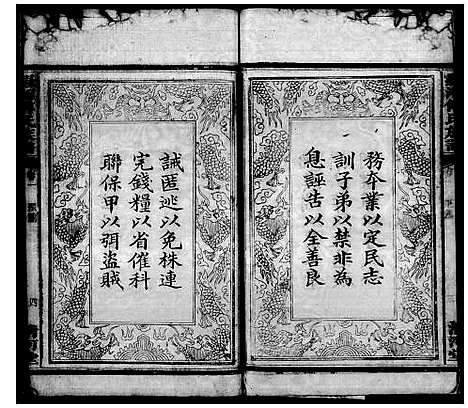 務本業以定民志
訓子弟以禁非為
息誣告以全善良
誡匿逃以免株連
完錢糧以省催科
聯保甲以弭盜賊